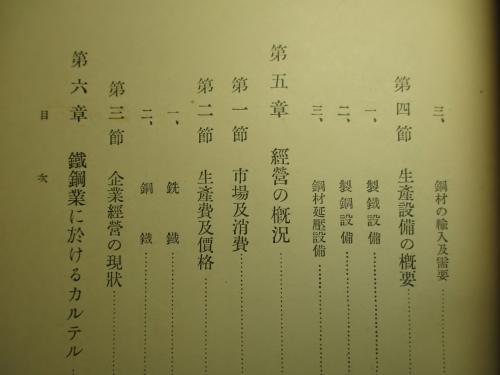 三、鋼材の輸入及需要
第四節 生產設備の槪要
一、製鐵設備
二、製鋼設備
三、鋼材延壓設備
第五章 經營の槪況
第一節 市場及消費
第二節 生產費及價格
一、銑鐵
二、鋼鐵
第三節 企業經營の現狀
第六章 鐵鋼業に於けるカルテル
目次